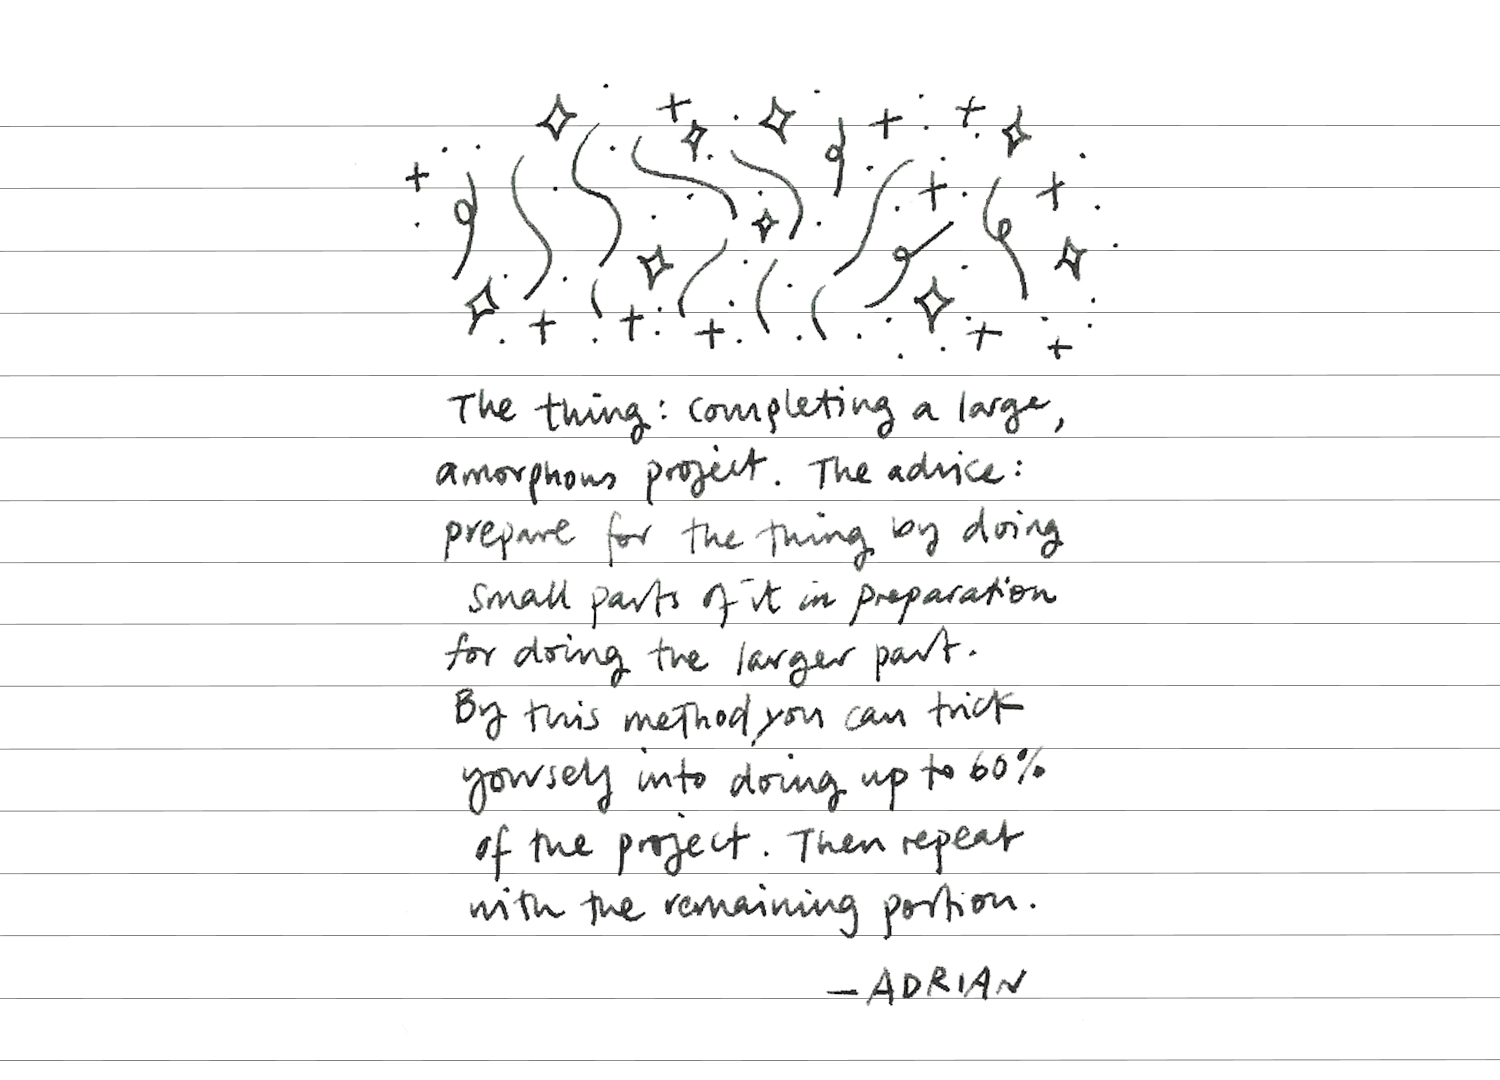 The thing: completing a large,
amorphous project. The advice:
prepare for the thing by doing
small parts of it in preparation
for doing the larger part.
By this method, you can trick
yourself into doing up to 60%
of the project. Then repeat
with the remaining portion.
—ADRIAN